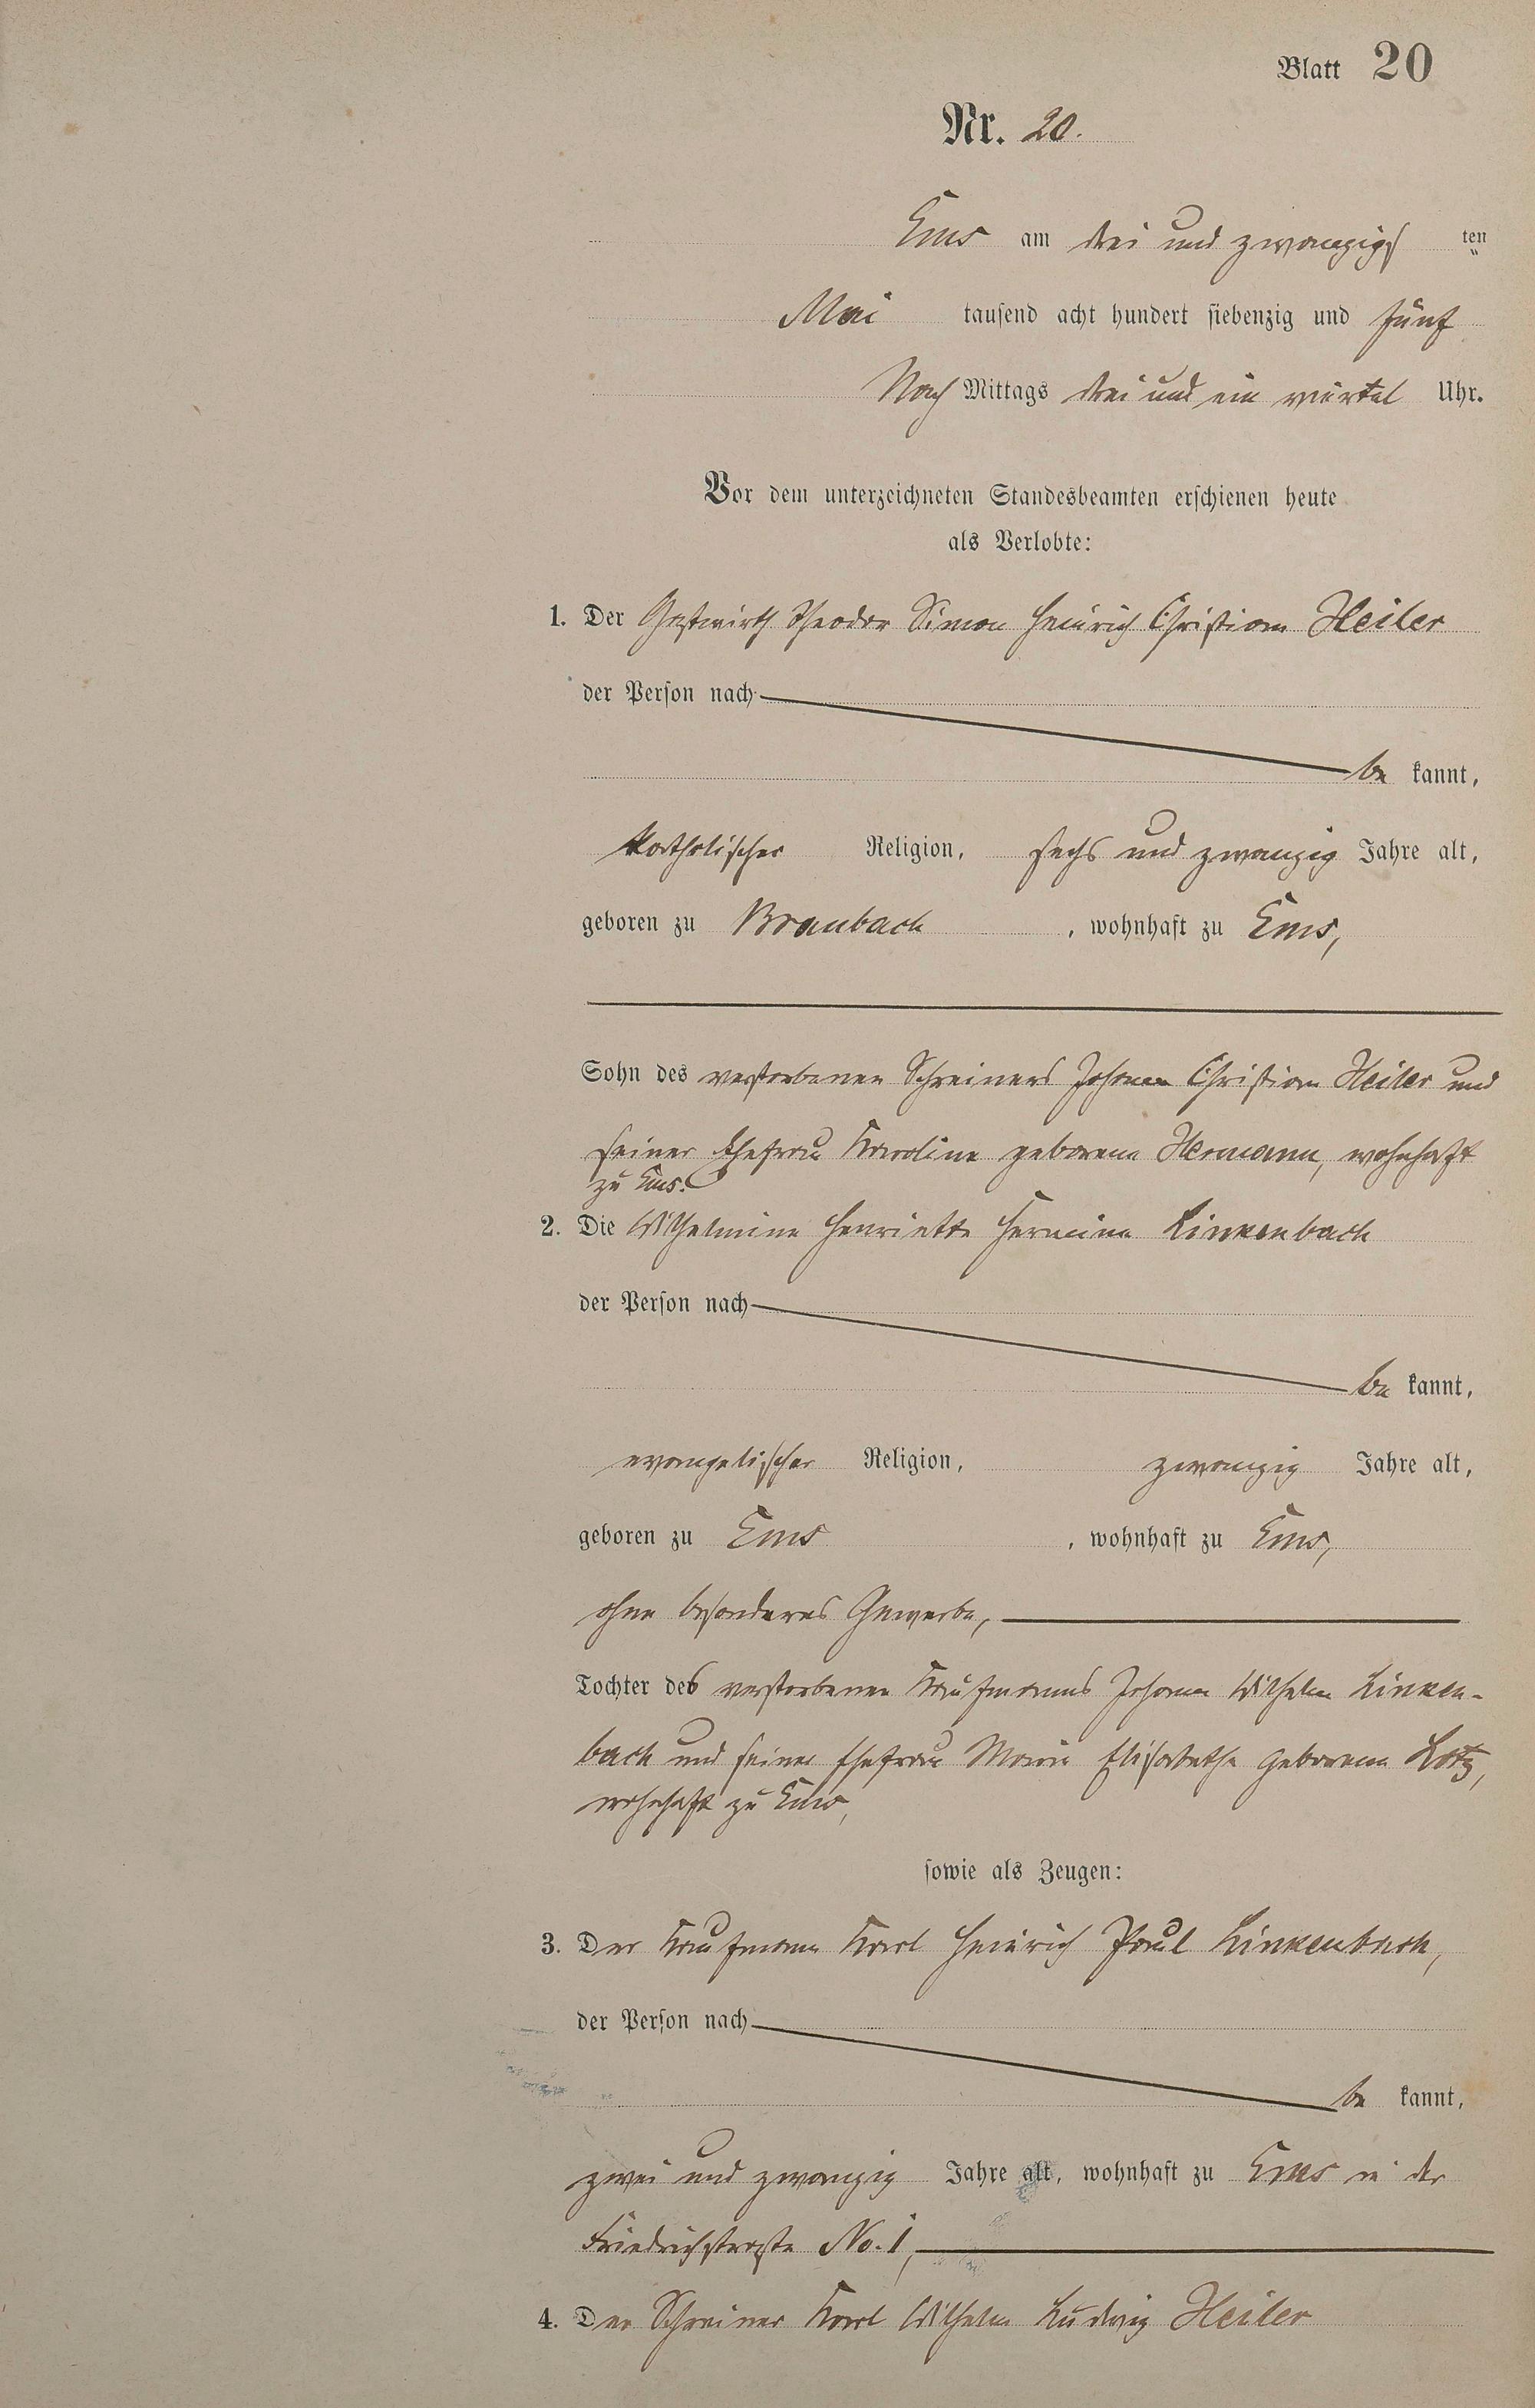 Blatt 20
Nr. 20.
Ems am drei und zwanzigs ten
Mai tausend acht hundert siebenzig und fünf
Nach Mittags drei und ein viertel Uhr.
Vor dem unterzeichneten Standesbeamten erschienen heute
als Verlobte:
1. Der Gastwirth Theodor Simon Heinrich Christian Heiler
der Person nach
be kannt,
katholischer Religion, sechs und zwanzig Jahre alt,
geboren zu Braubach, wohnhaft zu Ems,
Sohn des verstorbenen Schreiners Johann Christian Heiler und
seiner Ehefrau Karoline geborene Hermann, wohnhaft
zu Ems.
2. Die Wilhelmine Henriette Hermine Linkenbach
der Person nach
be kannt,
evangelischer Religion, zwanzig Jahre alt,
geboren zu Ems, wohnhaft zu Ems,
ohne besonderes Gewerbe,
Tochter des verstorbenen Kaufmanns Johann Wilhelm Linken-
bach und seiner Ehefrau Maria Elisabetha geborene Lotz,
wohnhaft zu Ems,
sowie als Zeugen:
3. Der Kaufmann Karl Heinrich Paul Linkenbach,
der Person nach
be kannt,
zwei und zwanzig Jahre alt, wohnhaft zu Ems in der
Friedrichstraße No. 1,
4. Der Schreiner Karl Wilhelm Ludwig Heiler